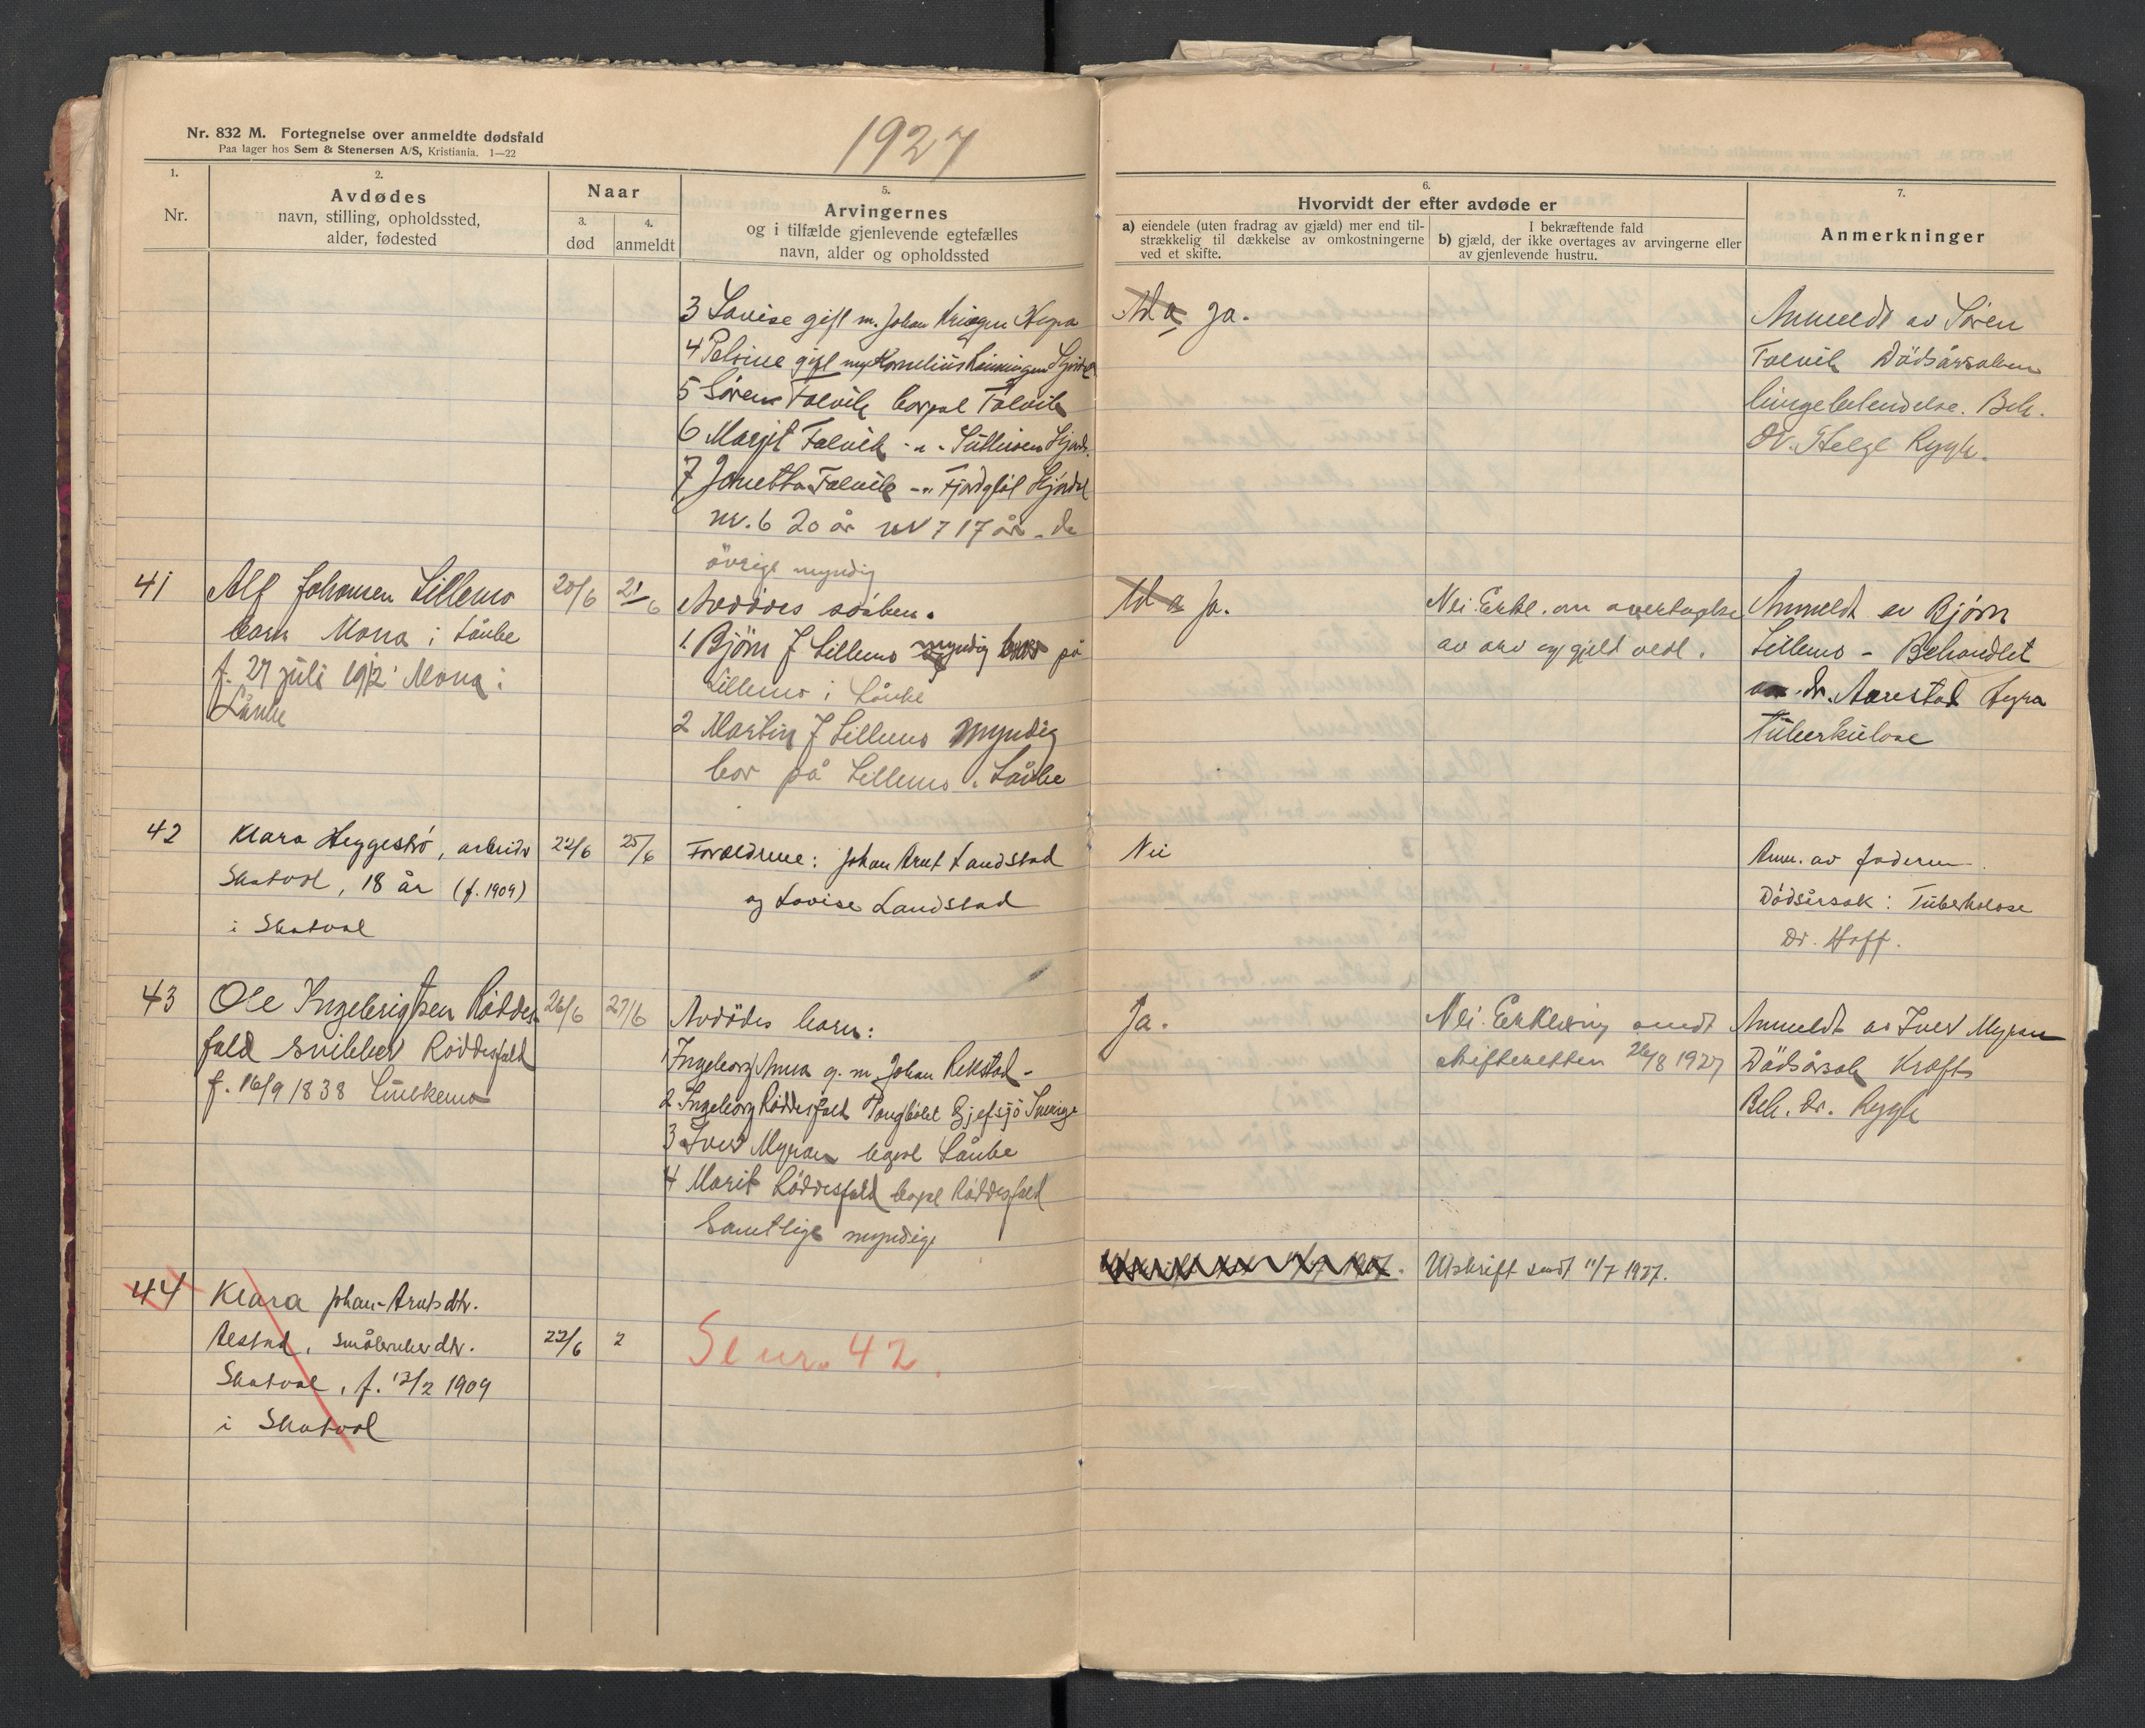 Nr. 832 M. Fortegnelse over anmeldte dødsfald
Paa lager hos Sem & Stenersen A/S, Kristiania. 1—22
1927
1.
Nr.
2.
Avdødes
navn, stilling, opholdssted,
alder, fødested
Naar
3.
død
4.
anmeldt
5.
Arvingernes
og i tilfælde gjenlevende egtefælles
navn, alder og opholdssted
6.
Hvorvidt der efter avdøde er
a) eiendele (uten fradrag av gjæld) mer end til-
strækkelig til dækkelse av omkostningerne
ved et skifte.
I bekræftende fald
b) gjæld, der ikke overtages av arvingerne eller
av gjenlevende hustru.
7.
Anmerkninger
3 Lovise gift m. Johan Hegra
4 gift m. Kornelius
5 Søren Falvik Falvik
6 Marjit Falvik -"-
7 Falvik -"-
nr. 6 20 år nr 7 17 år - de
övrige myndig
Ad a ja.
Anmeldt av Sören
Falvik Dödsårsaken
lungebetendelse. Beh.
Dr. Helge Rygh.
41
Alf Johansen Lillemo
barn Mona i Lånke
f. 27 juli 1912 Mona i
Lånke
20/6
21/6
Avdödes
1. Bjørn J Lillemo myndig bor på
Lillemo i Lånke
2 Martin J Lillemo myndig
bor på Lillemo i Lånke
Ad a Ja.
Nei. Erkl. om overtagelse
av arv og gjeld vedl.
Anmeldt av Bjørn
Lillemo - Behandlet
av dr. Aarestad Hegra
Tuberkulose
42
Klara Heggestrø, arbeider
Skatval, 18 år (f. 1909)
i Skatval
22/6
25/6
Forældrene: Johan Arnt Landstad
og Lovise Landstad
Nei
Anm. av faderen
Dödsårsak: Tuberkolose
Dr. Hoff.
43
Ole Ingebrigtsen Röddes-
fald snikker Röddesfald
f. 16/9 1838
26/6
27/6
Avdödes barn:
1 Ingeborg Anna g. m. Johan Rekstad -
2 Ingeborg Röddesfald Gjefsjö Sverige
3 Iver Myran Lånke
4 Marit Röddesfald Röddesfald
Samtlige myndige
Ja.
Nei. Erklæring sendt
skifteretten 26/8 1927
Anmeldt av Iver Myran
Dödsårsak Kræft
Beh. Dr. Rygh
Utskrift sendt 11/7 1927.
44
Klara Johan-Arntsdtr.
småbrukerdtr.
Skatval, f. 12/2 1909
i Skatval
22/6
2
Se nr. 42.